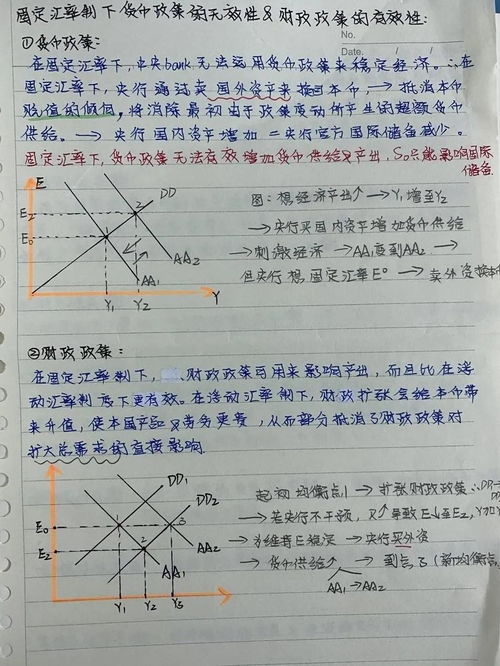 固定汇率制下货币政策的无效性&财政政策的有效性:
No.
Date. / /
①货币政策:
在固定汇率下,中央bank无法运用货币政策来稳定经济。∴在
固定汇率下,央行通过卖国外资产来换回本币,→抵消本币
贬值的倾向,将消除最初由于政策变动所产生的超额货币
供给。→央行国内资产增加=央行官方国际储备减少。
固定汇率下,货币政策无法有效增加货币供给及产出,So只能影响国际
储备
E
DD
E₂
2
E₀
1
AA₂
AA₁
Y₁ Y₂ Y
图:想经济产出↑→Y₁增至Y₂
→央行买国内资产增加货币供给
→刺激经济→AA₁变到AA₂→
但央行想固定汇率E⁰→卖外资换本币
②财政政策:
在固定汇率制下,财政政策可用来影响产出,而且比在浮
动汇率制度下更有效。在浮动汇率制下,财政扩张会给本币带
来升值,使本国产品及劳务更贵,从而部分抵消了财政政策对
扩大总需求的直接影响
DD₁
DD₂
E₀
1
3
E₂
2
AA₂
AA₁
Y₁ Y₂ Y₃
起初均衡点1→扩张财政政策∴DD→
→若央行不干预,R↑导致E↓至E₂,
→为维持E稳定→央行买外资
→货币供给↑→到点3(新均衡点
AA₁→AA₂